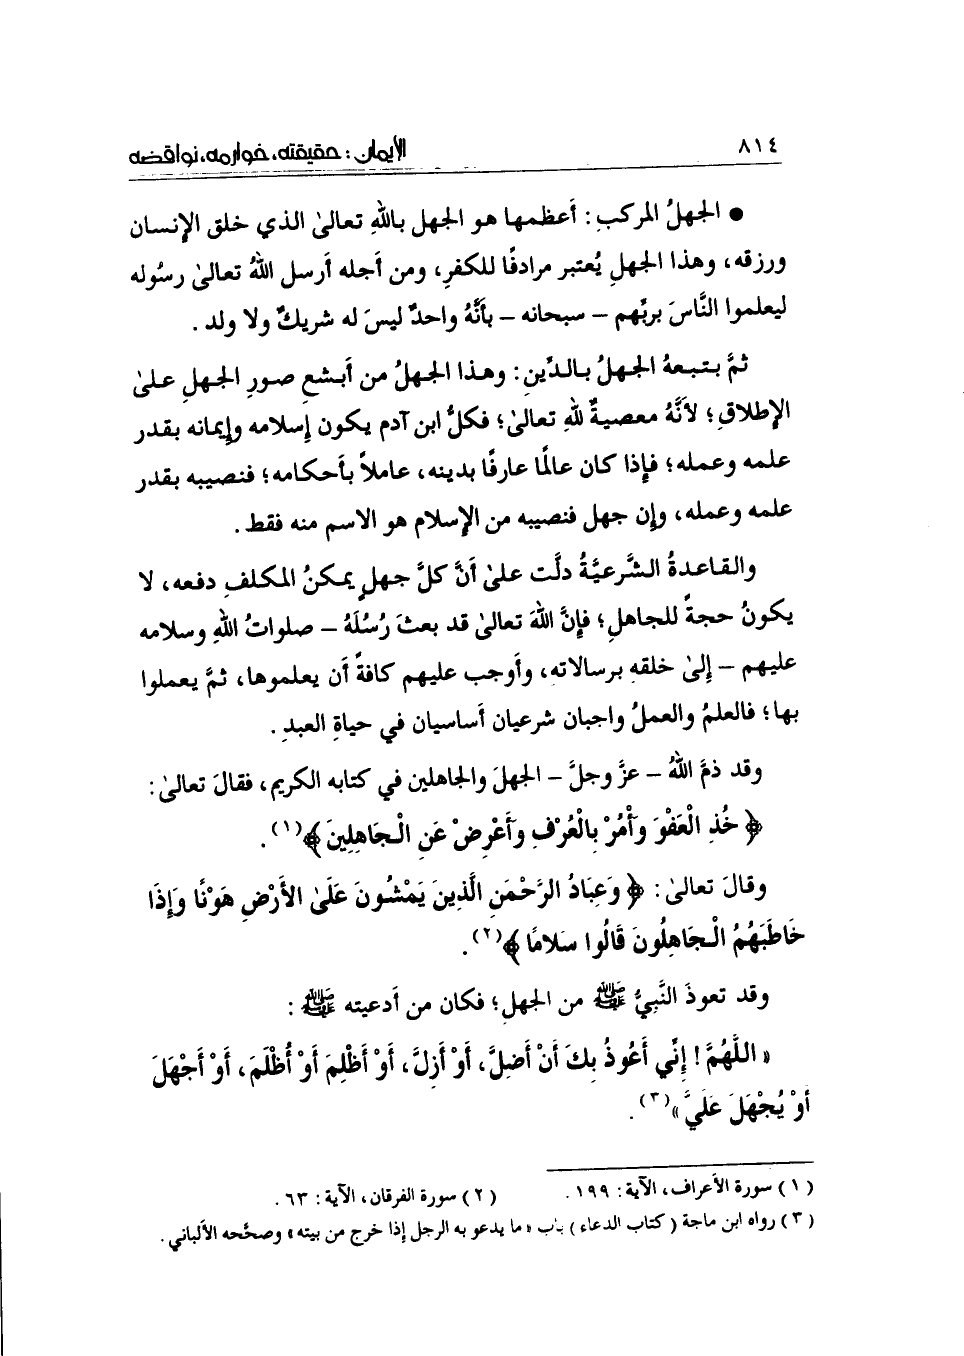 ٨١٤
الإيمان : حقيقته، خوارمه، نواقضه
● الجهلُ المركبِ : أعظمها هو الجهل باللهِ تعالىٰ الذي خلق الإنسان
ورزقه، وهذا الجهلِ يُعتبر مرادفًا للكفرِ، ومن أجله أرسل اللهُ تعالىٰ رسُوله
ليعلموا النَّاسَ بربِّهم – سبحانه – بأنَّهُ واحدٌ ليسَ له شريكٌ ولا ولد .
ثمَّ يـتـبـعهُ الجهلُ بـالـدِّينِ : وهـذا الجهلُ من أبـشعِ صورِ الجهلِ علىٰ
الإطلاقِ؛ لأنَّهُ معصيةٌ للهِ تعالىٰ؛ فكلُّ ابن آدم يكون إسلامه وإيمانه بقدر
علمه وعمله؛ فإذا كان عالمًا عارفًا بدينه، عاملاً بأحكامه؛ فنصيبه بقدر
علمه وعمله، وإن جهل فنصيبه من الإسلام هو الاسم منه فقط .
والقـاعدةُ الـشَّرعيَّةُ دلَّت علىٰ أنَّ كلَّ جهلٍ يمكنُ المكلفِ دفعه، لا
يكونُ حجةً للجاهلِ؛ فإنَّ اللهَ تعالىٰ قد بعثَ رُسُلَهُ – صلواتُ اللهِ وسلامه
عليهم – إلىٰ خلقهِ برسالاته، وأوجب عليهم كافةً أن يعلموها، ثمَّ يعملوا
بها؛ فالعلمُ والعملُ واجبان شرعيان أساسيان في حياةِ العبدِ .
وقد ذمَّ اللهُ – عزَّ وجلَّ – الجهلَ والجاهلين في كتابه الكريم، فقالَ تعالىٰ :
﴿ خُذِ الْعَفْوَ وَأْمُرْ بِالْعُرْفِ وَأَعْرِضْ عَنِ الْجَاهِلِينَ ﴾(١).
وقالَ تعالىٰ : ﴿ وَعِبَادُ الرَّحْمَنِ الَّذِينَ يَمْشُونَ عَلَىٰ الأَرْضِ هَوْنًا وَإِذَا
خَاطَبَهُمُ الْجَاهِلُونَ قَالُوا سَلامًا ﴾(٢).
وقد تعوذَ النَّبِيُّ ﷺ من الجهلِ؛ فكان من أدعيته ﷺ :
« اللَّهُمَّ ! إِنِّي أَعُوذُ بِكَ أَنْ أَضِلَّ، أَوْ أَزِلَّ، أَوْ أَظْلِمَ أَوْ أُظْلَمَ، أَوْ أَجْهَلَ
أَوْ يُجْهَلَ عَلَيَّ »(٣).
( ١ ) سورة الأعراف، الآية : ١٩٩ . ( ٢ ) سورة الفرقان، الآية : ٦٣ .
( ٣ ) رواه ابن ماجة ( كتاب الدعاء ) باب « ما يدعو به الرجل إذا خرج من بيته » وصحَّحه الألباني .